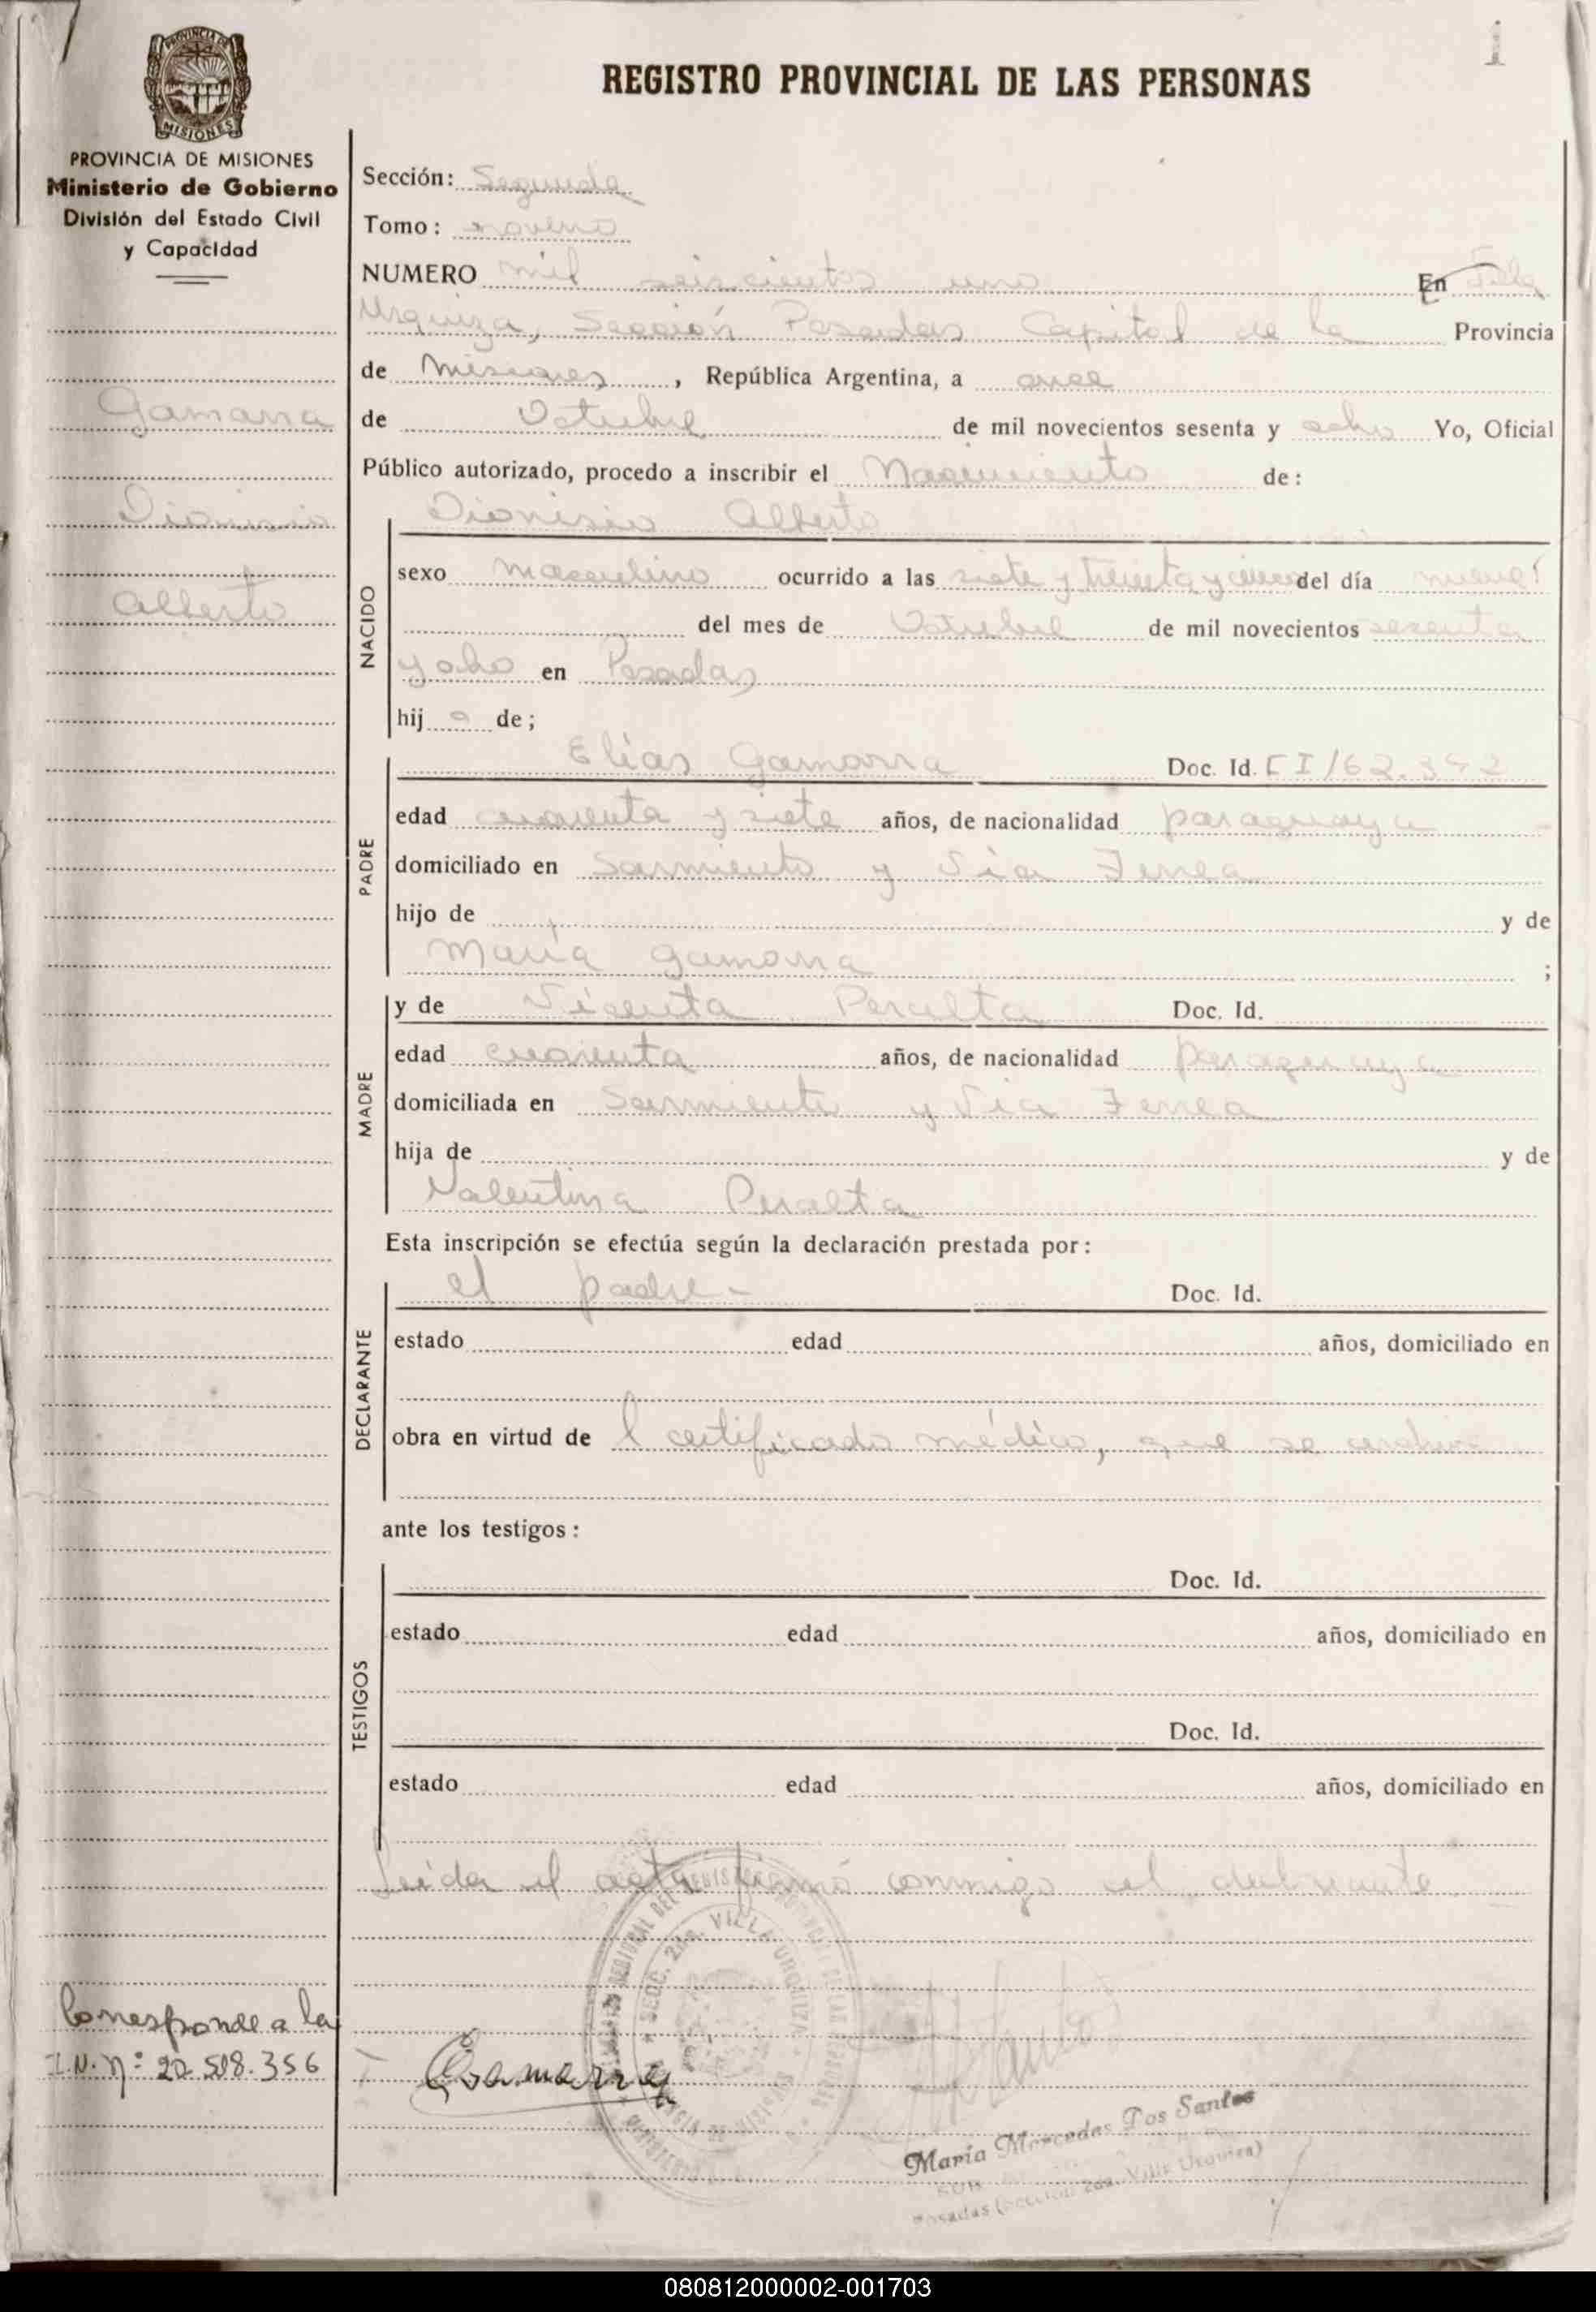 1
REGISTRO PROVINCIAL DE LAS PERSONAS
PROVINCIA DE
MISIONES
PROVINCIA DE MISIONES
Ministerio de Gobierno
División del Estado Civil
y Capacidad
Gamarra
Dionisio
Alberto
Corresponde a la
I.N. Nº: 20.508.356
Sección: Segunda
Tomo: noveno
NUMERO mil seiscientos uno En Villa
Urquiza, Sección Posadas Capital de la Provincia
de Misiones, República Argentina, a once
de Octubre de mil novecientos sesenta y ocho Yo, Oficial
Público autorizado, procedo a inscribir el Nacimiento de:
NACIDO
Dionisio Alberto
sexo masculino ocurrido a las siete y treinta y cinco del día nueve
del mes de Octubre de mil novecientos sesenta
y ocho en Posadas
hij o de;
PADRE
Elías Gamarra Doc. Id. CI/62.342
edad cuarenta y siete años, de nacionalidad paraguaya
domiciliado en Sarmiento y Via Ferrea
hijo de y de
María Gamarra ;
MADRE
y de Vicenta Peralta Doc. Id.
edad cuarenta años, de nacionalidad paraguaya
domiciliada en Sarmiento y Via Ferrea
hija de y de
Valentina Peralta
Esta inscripción se efectúa según la declaración prestada por:
DECLARANTE
el padre - Doc. Id.
estado edad años, domiciliado en
obra en virtud de l certificado médico, que se archiva
ante los testigos:
TESTIGOS
Doc. Id.
estado edad años, domiciliado en
Doc. Id.
estado edad años, domiciliado en
Leída el acta firmó conmigo el declarante
SECC. 2da. VILLA URQUIZA
Gamarra
María Mercedes Dos Santos
Posadas (Sección 2da. Villa Urquiza)
080812000002-001703